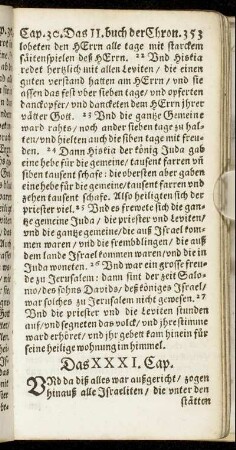 Cap. 30. Das II. buch der Chron. 353
lobeten den HErrn alle tage mit starckem
säitenspielen deß HErrn. 22 Vnd Hiskia
redet hertzlich mit allen Leviten / die einen
guten verstand hatten am HErrn / vnd sie
assen das fest vber sieben tage / vnd opferten
danckopfer / vnd danckten dem HErrn jhrer
vätter Gott. 23 Vnd die gantze Gemeine
ward rahts / noch ander sieben tage zu hal-
ten / vnd hielten auch die sieben tage mit freu-
den. 24 Dann Hiskia der König Juda gab
eine hebe für die gemeine / tausent farren vñ
siben tausent schafe: die obersten aber gaben
eine hebe für die gemeine / tausent farren vnd
zehen tausent schafe. Also heiligten sich der
priester viel. 25 Vnd es frewete sich die gan-
tze gemeine Juda / die priester vnd Leviten /
vnd die gantze gemeine / die auß Israel kom-
men waren / vnd die frembdlingen / die auß
dem lande Israel kommen waren / vnd die in
Juda woneten. 26 Vnd war ein grosse freu-
de zu Jerusalem: dann sint der zeit Salo-
mo / des sohns Davids / deß königes Israel /
war solches zu Jerusalem nicht gewesen. 27
Vnd die priester vnd die Leviten stunden
auf / vnd segneten das volck / vnd jhre stimme
ward erhöret / vnd jhr gebett kam hinein für
seine heilige wohnung im himmel.
Das XXXI. Cap.
VNd da diß alles war außgericht / zogen
hinauß alle Israeliten / die vnter den
stätten